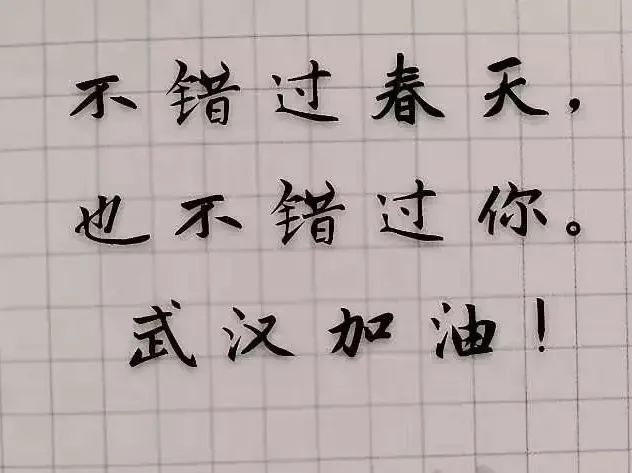 不错过春天，
也不错过你。
武汉加油！